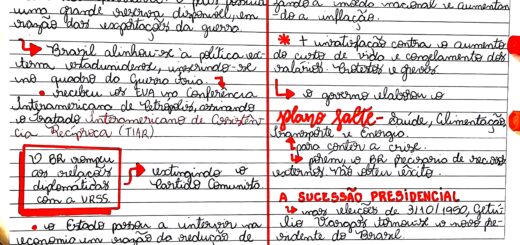 uma grande reserva disponível, em
razão das exportações da guerra
↳ Brasil alinhou-se a política ex-
terna estadunidense, inserindo-se
no quadro da Guerra Fria
• recebeu os EUA na Conferência
Interamericana de Petrópolis, assinando
o Tratado Interamericano de Assistên-
cia Recíproca (TIAR)
O BR rompeu
as relações
diplomáticas
com a URSS.
extinguindo o
Partido Comunista.
• o Estado passou a intervir na
economia em razão da redução de
a moeda nacional e aumentan-
do a inflação.
* + insatisfação contra o aumento
do custo de vida e congelamento dos
salários. Protestos e greves.
↳ o governo elaborou o
plano Salte - Saúde, Alimentação,
transporte e Energia.
para conter a crise.
↳ porém, o BR precisaria de recursos
externos. Não obteu êxito.
A SUCESSÃO PRESIDENCIAL
↳ nas eleições de 3/10/1950, Getú-
lio Vargas tornou-se o novo pre-
sidente do Brasil.